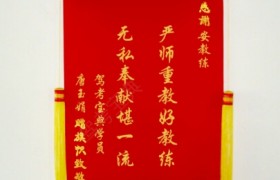 感谢安教练
严师重教好教练
无私奉献堪一流
驾考宝典学员
唐玉娟